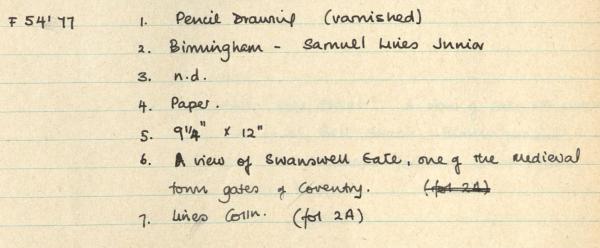 F 54' 77 1. Pencil Drawing (varnished)
2. Birmingham - Samuel Lines Junior
3. n.d.
4. Paper.
5. 9¼" x 12"
6. A view of Swanswell Gate, one of the medieval
town gates of Coventry. (fol 2A)
7. Lines Colln. (fol 2A)